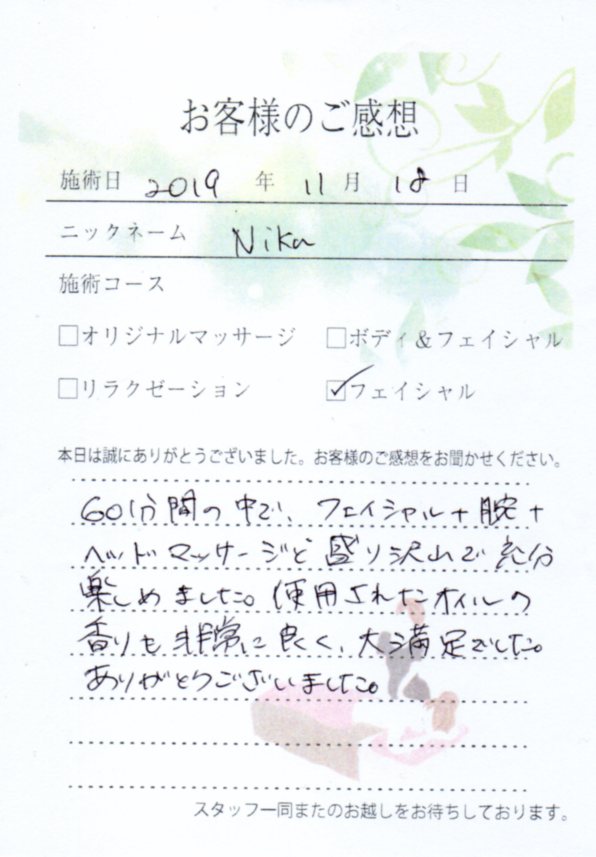 お客様のご感想
施術日 2019 年 11 月 18 日
ニックネーム Nika
施術コース
□オリジナルマッサージ □ボディ&フェイシャル
□リラクゼーション ☑フェイシャル
本日は誠にありがとうございました。お客様のご感想をお聞かせください。
60分間の中で、フェイシャル+腕+
ヘッドマッサージと盛り沢山で充分
楽しめました。使用されたオイルの
香りも非常に良く、大満足でした。
ありがとうございました。
スタッフ一同またのお越しをお待ちしております。